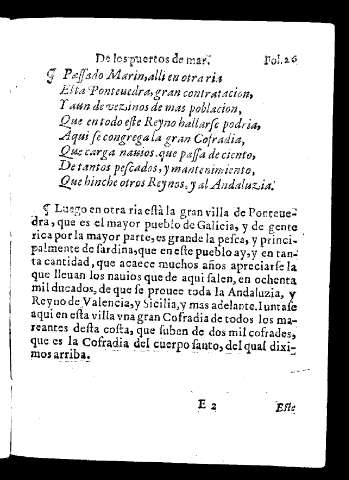 De los puertos de mar.   Fol. 26
¶ Passado Marin, alli en otra ria
Esta Ponteuedra, gran contratacion,
Y aun de vezinos de mas poblacion,
Que en todo este Reyno hallarse podria,
Aqui se congrega la gran Cofradia,
Que carga nauios, que passa de ciento,
De tantos pescados, y mantenimiento,
Que hinche otros Reynos, y al Andaluzia.
¶ Luego en otra ria està la gran villa de Ponteue-
dra, que es el mayor pueblo de Galicia, y de gente
rica por la mayor parte, es grande la pesca, y princi-
palmente de sardina, que en este pueblo ay, y en tan-
ta cantidad, que acaece muchos años apreciarse la
que lleuan los nauios que de aqui salen, en ochenta
mil ducados, de que se prouee toda la Andaluzia, y
Reyno de Valencia, y Sicilia, y mas adelante. Iuntase
aqui en esta villa vna gran Cofradia de todos los ma-
reantes desta costa, que suben de dos mil cofrades,
que es la Cofradia del cuerpo santo, del qual dixi-
mos arriba.
E 2   Este